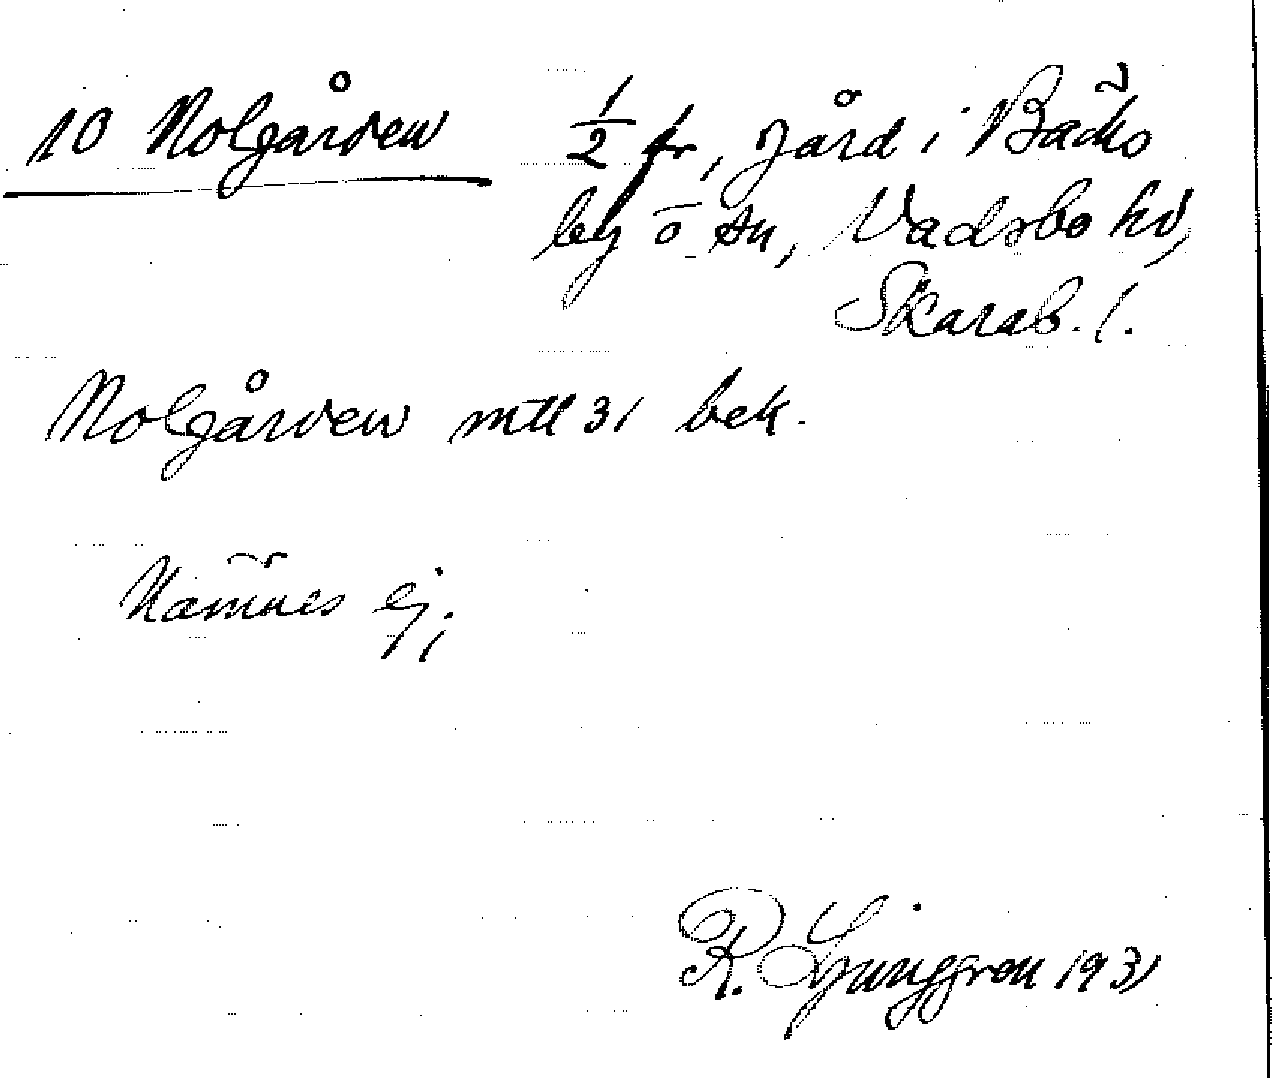 10 Nolgården ½ fr, gård i Bäcks
by o sn, Vadsbo hd,
Skarab. l.
Nolgården mtl 31 bek.
Nämnes ej;
R. Ljunggren 1931